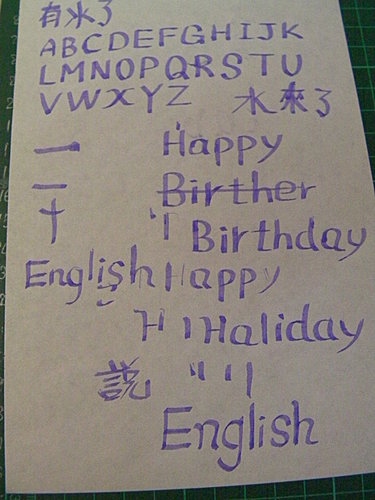 有水了
ABCDEFGHIJK
LMNOPQRSTU
VWXYZ 水來了
一 Happy
一 Birther
十 Birthday
English Happy
H Haliday
説
English